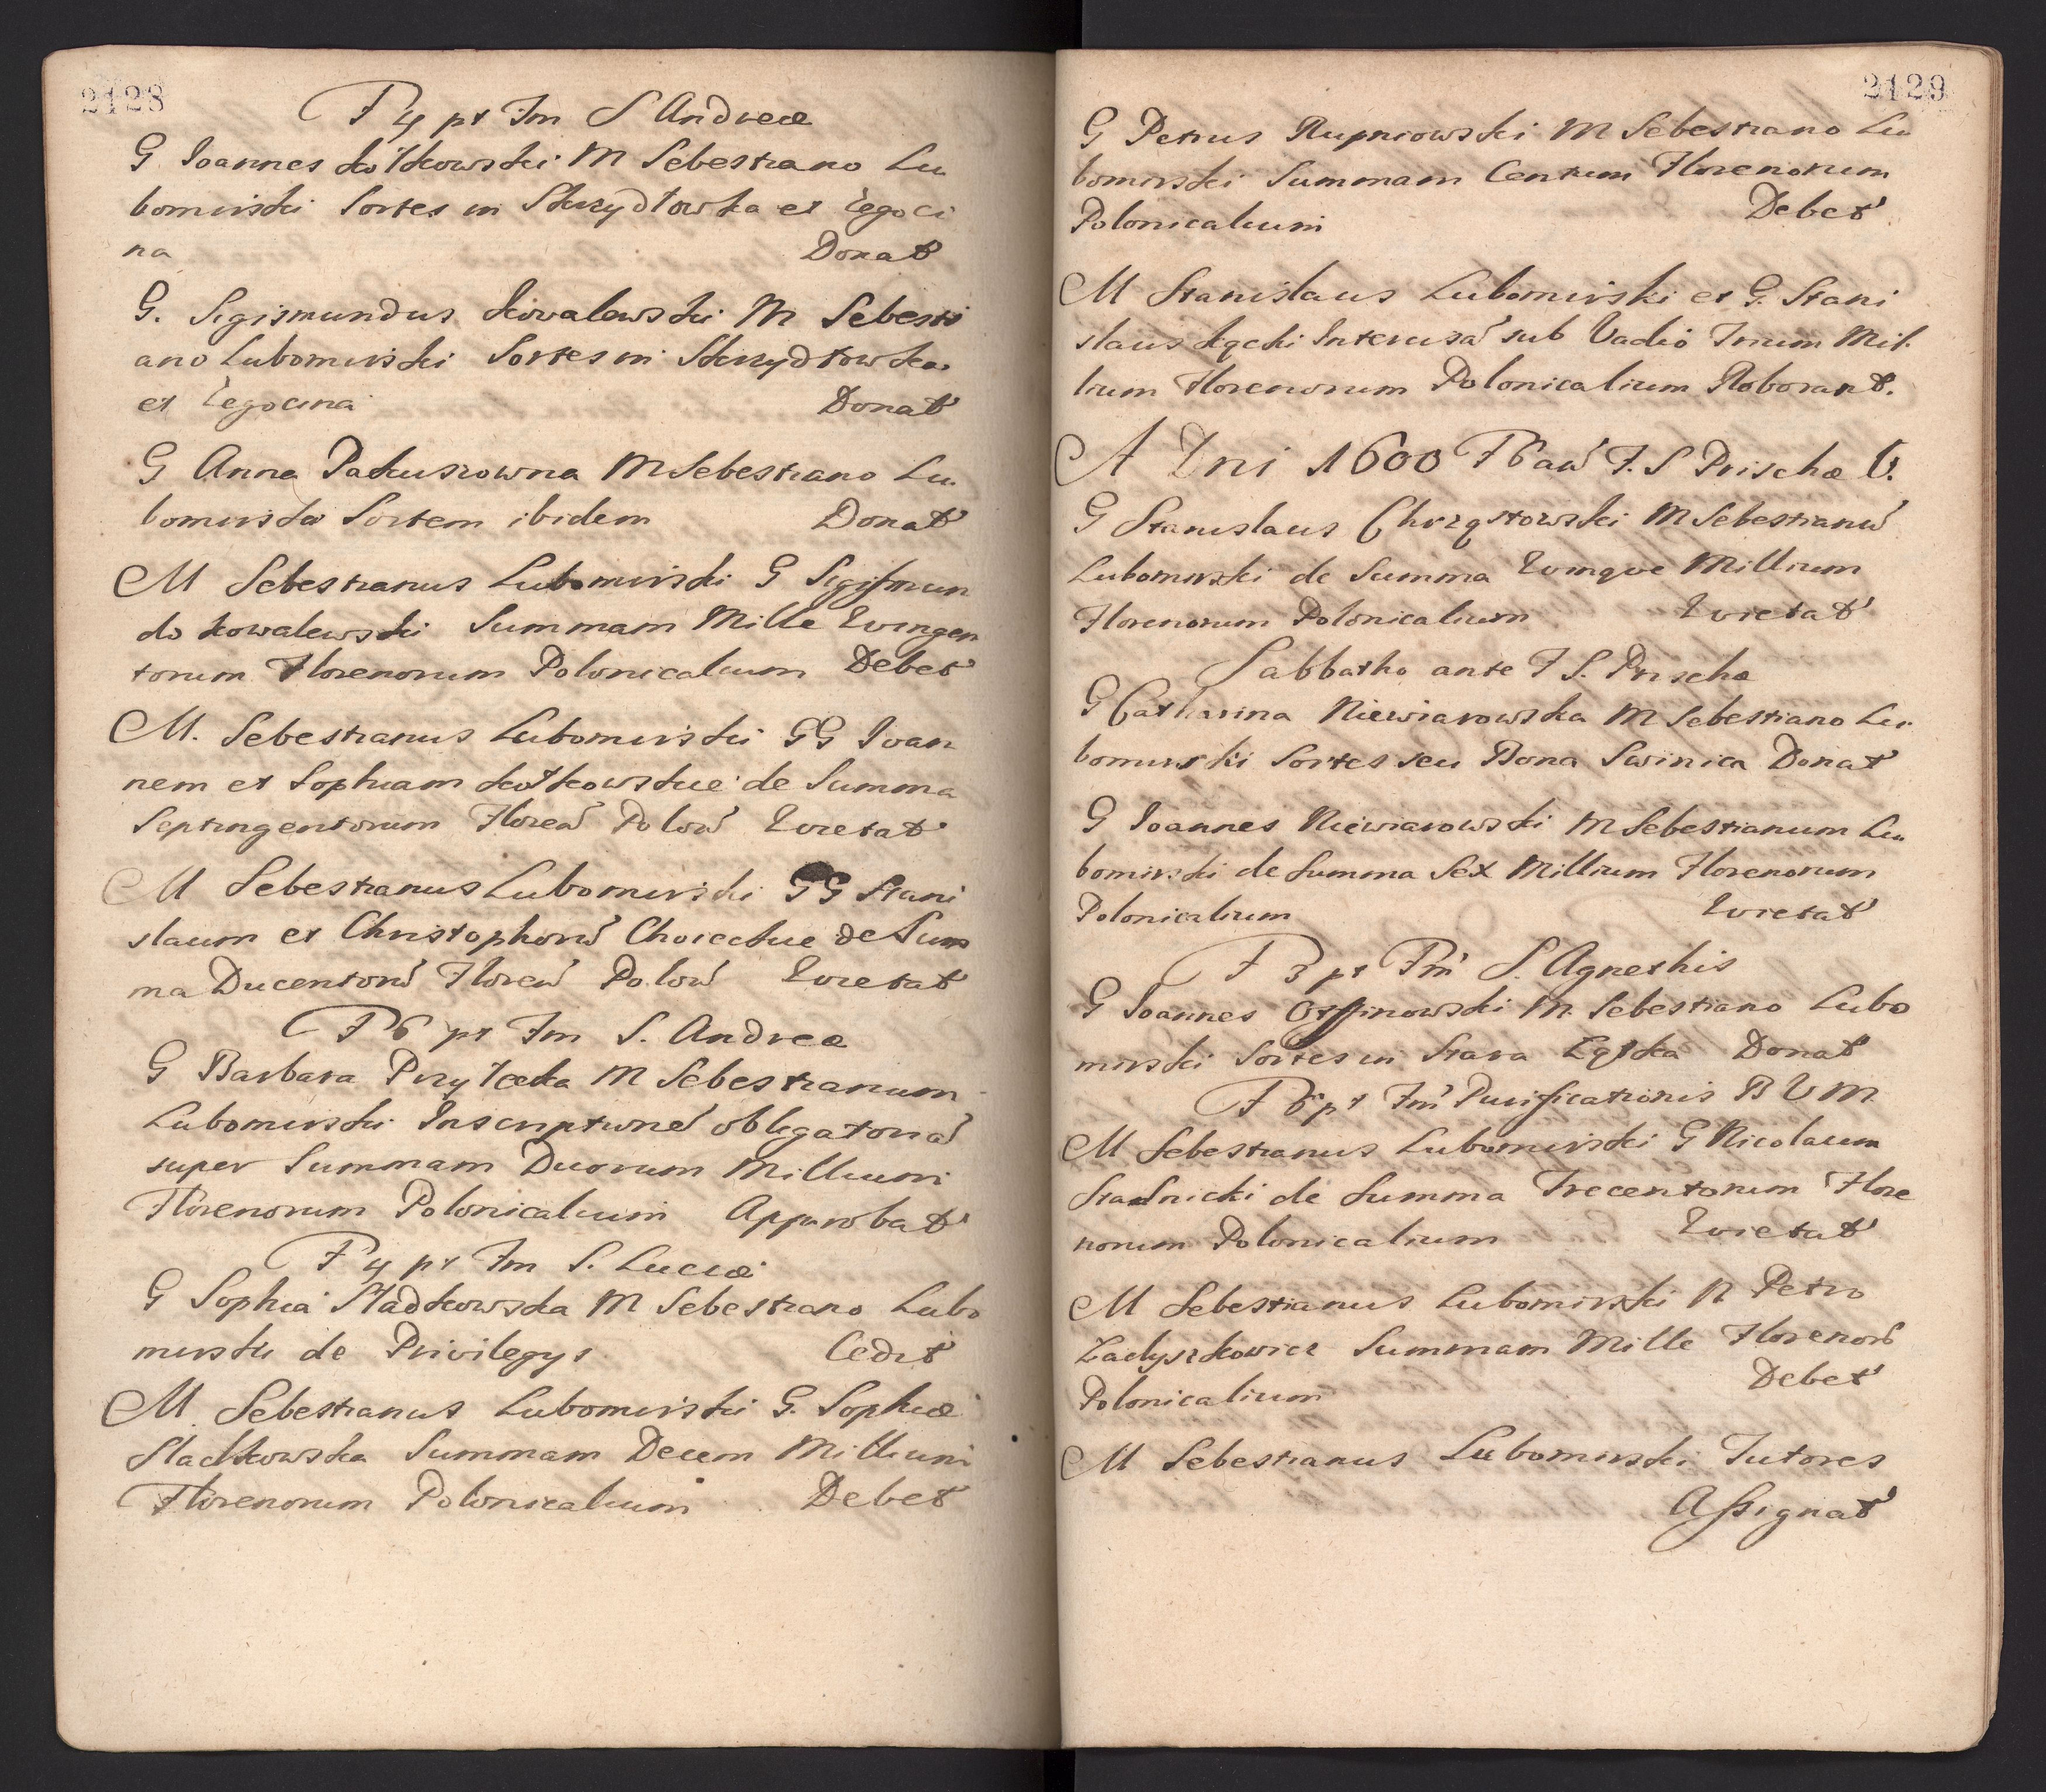 2128
F 4 pt Fm S Andreæ
G Joannes Kotkowski M Sebestiano Lu
bomirski Sortes in Skrzydłowska et Żegoci
na Donat
G. Sigismundus Kowalewski M Sebesti
ano Lubomirski Sortes in Skrzydłowska
et Żegocina Donat
G Anna Pakusiowna M Sebestiano Lu
bomirski Sortem ibidem Donat
M Sebestianus Lubomirski G Sigismun
do Kowalewski Summam Mille Quingen
torum Florenorum Polonicalium Debet
M. Sebestianus Lubomirski GG Joan
nem et Sophiam Kotkowskie de Summa
Septingentorum Floren Polon Quietat
M Sebestianus Lubomirski GG Stani
slaum et Christophorū Choieckie de Sum
ma Ducentorū Floren Polon Quietat
F 6 pt Fm S. Andreæ
G Barbara Przyłecka M Sebestianum
Lubomirski Inscriptione obligatoria
super Summam Duorum Millium
Florenorum Polonicalium Approbat
F 4 pt Fm S. Luciæ
G Sophia Sladkowska M Sebestiano Lubo
mirski de Privilegys Cedit
M. Sebestianus Lubomirski G. Sophiæ
Sladkowska Summam Decem Millium
Florenorum Polonicalium Debet
2129
G Petrus Rupniowski M Sebestiano Lu
bomirski Summam Centum Florenorum
Polonicalium Debet
M Stanislaus Lubomirski et G. Stani
slaus Łącki Intercisā sub Vadio Trium Mil
lium Florenorum Polonicalium Roborant.
A Dni 1600 F 6 an F. S Prischæ V.
G Stanislaus Chrząstowski M Sebestianū
Lubomirski de Summa Quinque Millium
Florenorum Polonicalium Quietat
Sabbatho ante F S. Prischæ
G Catharina Niewiarowska M Sebestiano Lu
bomirski Sortes seu Bona Swinica Donat
G Joannes Niewiarowski M Sebestianum Lu
bomirski de Summa Sex Millium Florenorum
Polonicalium Quietat
F 3 pt Fm S. Agnethis
G Joannes Ossinowski M Sebestiano Lubo
mirski Sortes in Stara Łąka Donat
F 6 pt Fm Purificationis B V M
M Sebestianus Lubomirski G Nicolaum
Stadnicki de Summa Trecentorum Flore
norum Polonicalium Quietat
M Sebestianus Lubomirski N Petro
Summam Mille Florenorū
Polonicalium Debet
M Sebestianus Lubomirski Tutores
Assignat